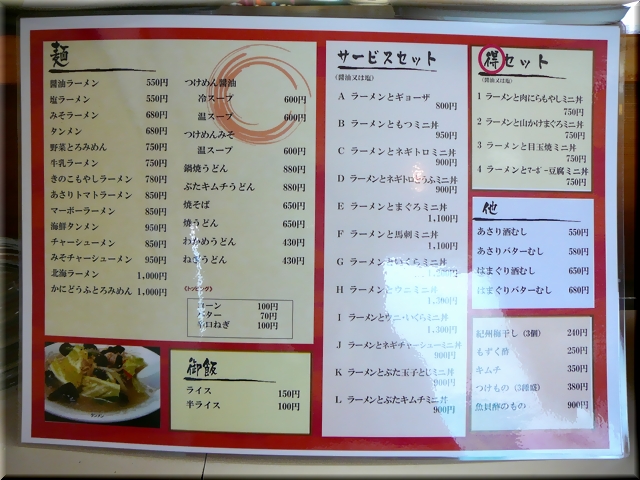 麺
醤油ラーメン 550円
塩ラーメン 550円
みそラーメン 680円
タンメン 680円
野菜とろみめん 750円
牛乳ラーメン 750円
きのこもやしラーメン 780円
あさりトマトラーメン 850円
マーボーラーメン 850円
海鮮タンメン 950円
チャーシューメン 850円
みそチャーシューメン 950円
北海ラーメン 1,000円
かにどうふとろみめん 1,000円
つけめん醤油
冷スープ 600円
温スープ 600円
つけめんみそ
温スープ 650円
鍋焼うどん 880円
ぶたキムチうどん 880円
焼そば 650円
焼うどん 650円
わかめうどん 430円
ねぎうどん 430円
《トッピング》
コーン 100円
バター 70円
辛口ねぎ 100円
タンメン
御飯
ライス 150円
半ライス 100円
サービスセット
(醤油又は塩)
A ラーメンとギョーザ
800円
B ラーメンともつミニ丼
950円
C ラーメンとネギトロミニ丼
900円
D ラーメンとネギトロとうふミニ丼
900円
E ラーメンとまぐろミニ丼
1,100円
F ラーメンと馬刺ミニ丼
1,100円
G ラーメンといくらミニ丼
H ラーメンとウニミニ丼
I ラーメンとウニ・いくらミニ丼
1,300円
J ラーメンとネギチャーシューミニ丼
900円
K ラーメンとぶた玉子とじミニ丼
900円
L ラーメンとぶたキムチミニ丼
900円
得セット
(醤油又は塩)
1 ラーメンと肉にらもやしミニ丼
750円
2 ラーメンと山かけまぐろミニ丼
750円
3 ラーメンと目玉焼ミニ丼
750円
4 ラーメンとマーボー豆腐ミニ丼
750円
他
あさり酒むし 550円
あさりバターむし 580円
はまぐり酒むし 650円
はまぐりバターむし 680円
紀州梅干し (3個) 240円
もずく酢 250円
キムチ 350円
つけもの (3種盛) 380円
魚貝酢のもの 900円